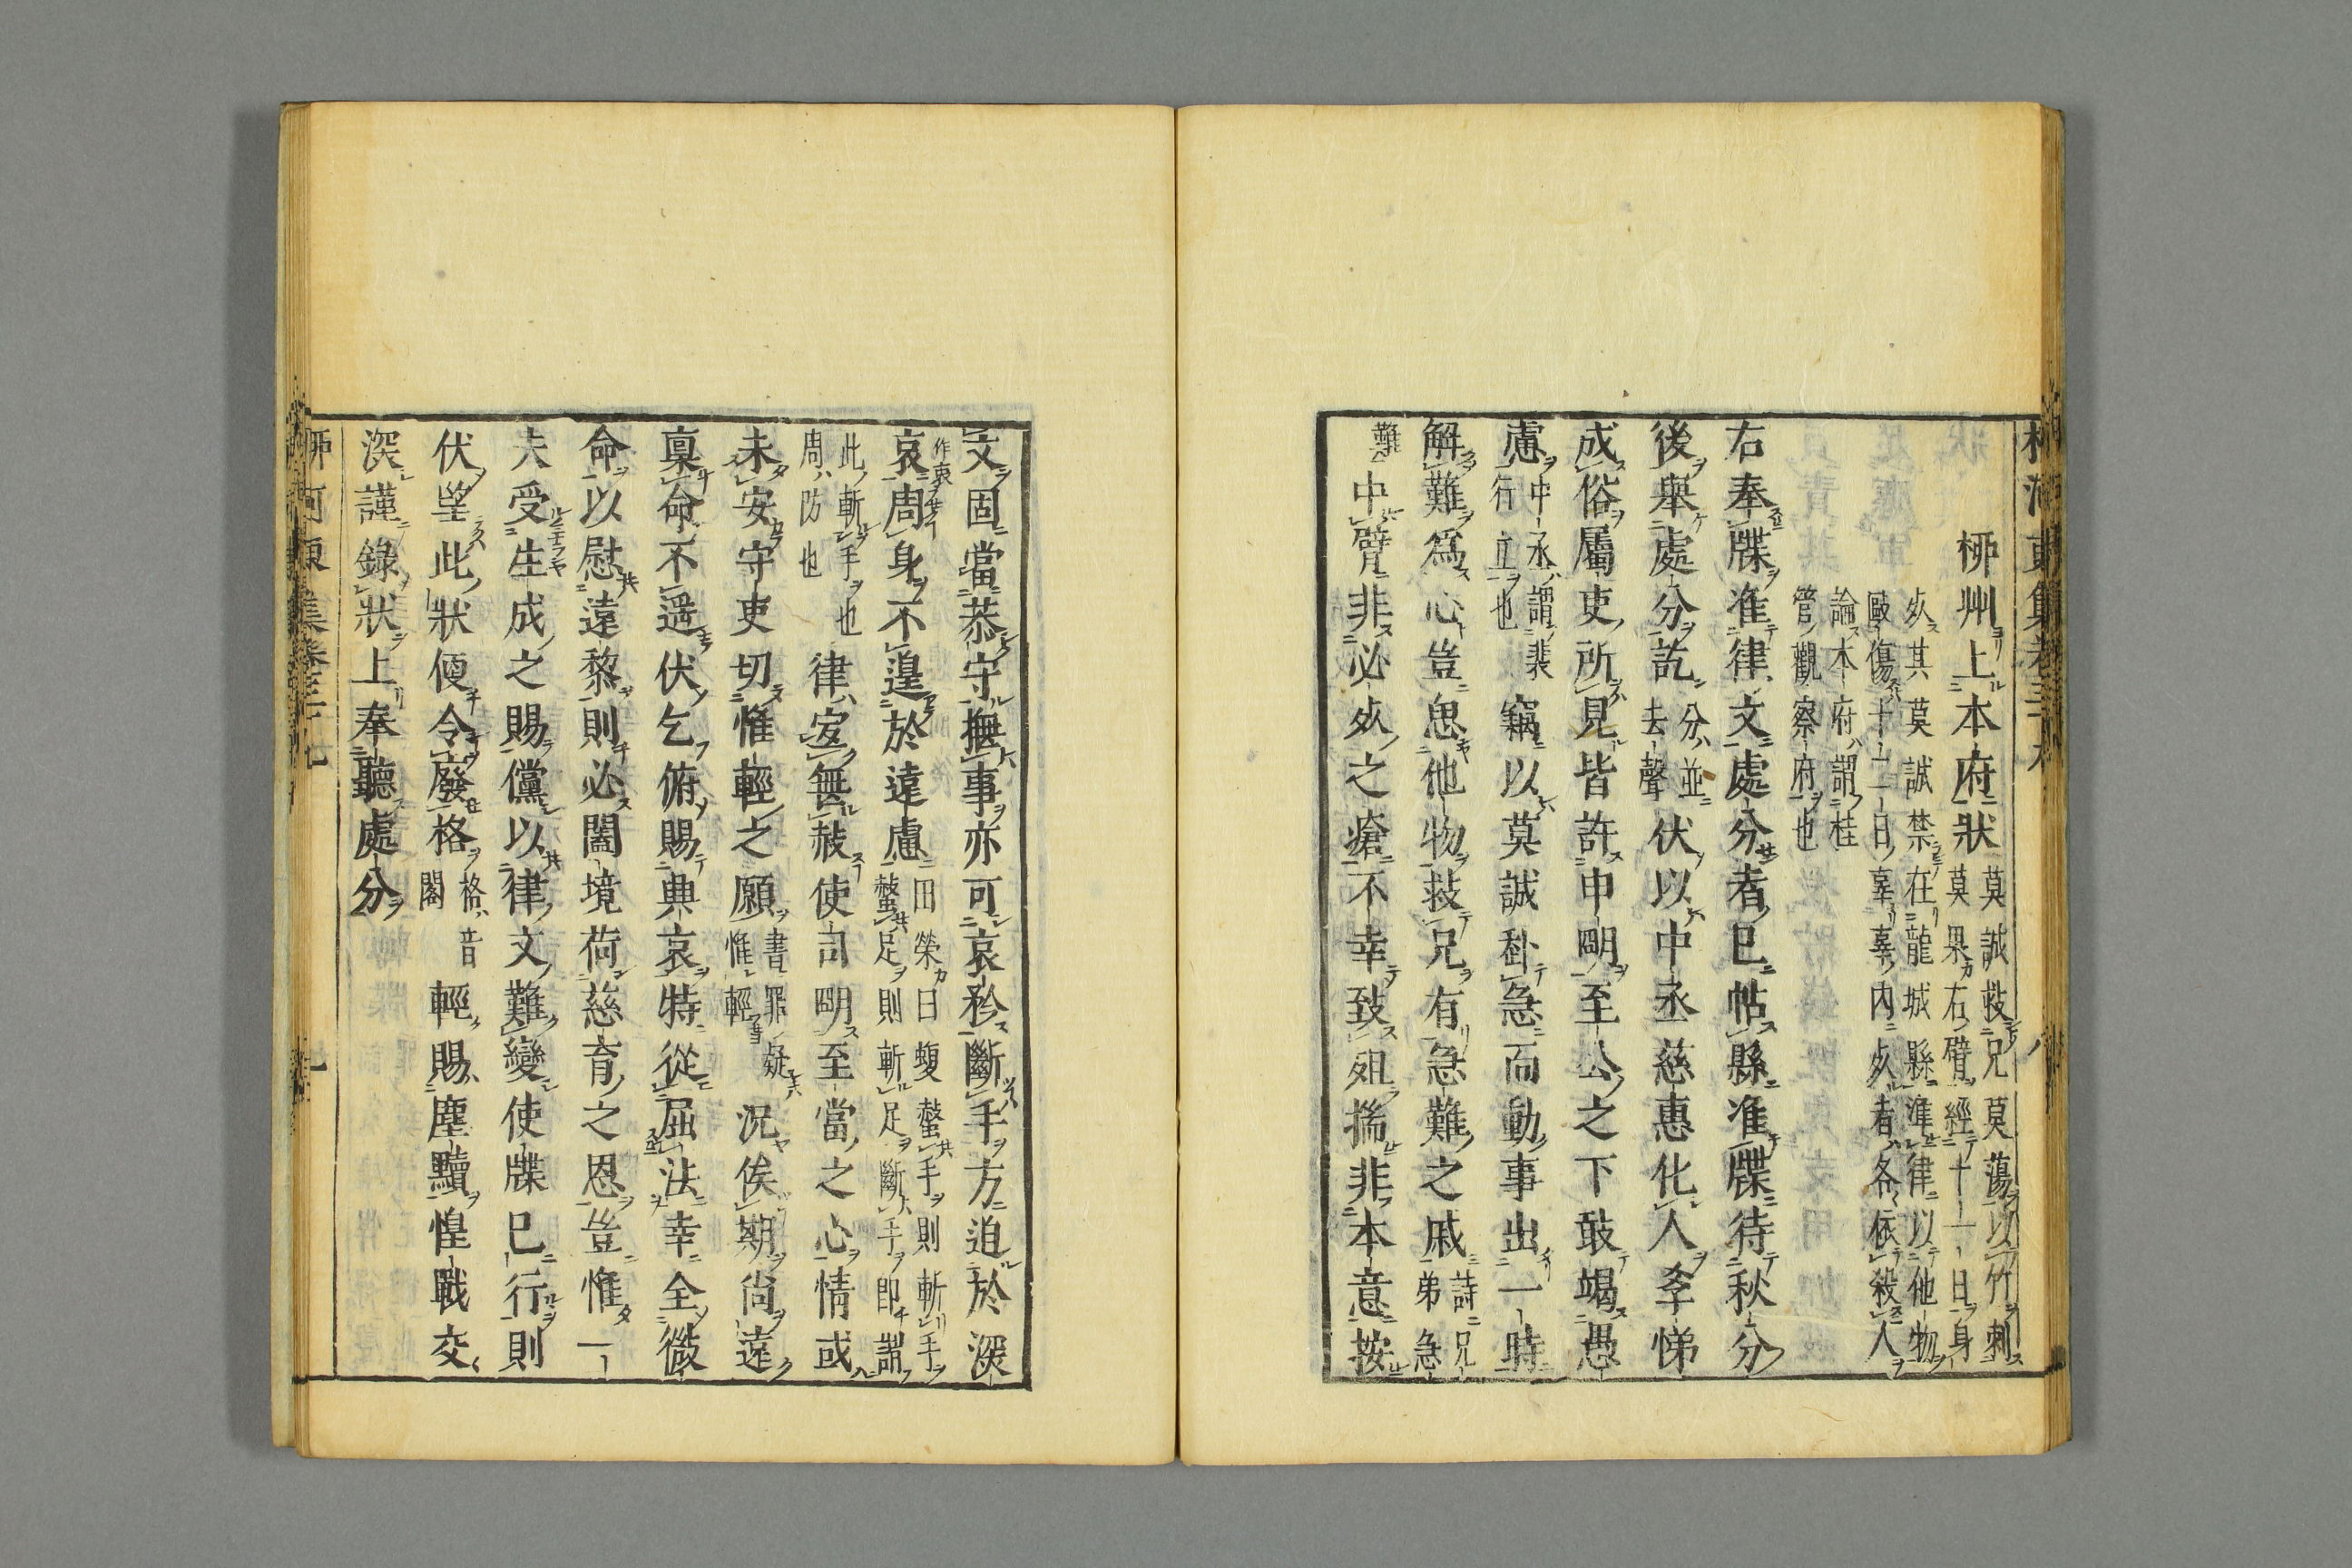 柳州上本府狀
莫誠救兄莫蕩以竹刺
莫果右臂經十一日身
死其莫誠禁在龍城縣準律以他物
毆傷十二日辜辜內死者各依殺人
論本府謂桂
管觀察府也
右奉牒准律文處分者已帖縣准牒待秋分
後舉處分訖分並去聲伏以中丞慈惠化人孝悌
成俗屬吏所見皆許申明至公之下敢竭愚
慮中丞謂裴行立也竊以莫誠赴急而動事出一時
解難爲心豈思他物救兄有急難之戚詩兄弟急
難中臂非必死之瘡不幸致殂揣非本意按
文固當恭守撫事亦可哀矜斷手方迫於深
哀作衷周身不遑於遠慮田榮曰蝮螫手則斬手螫足則斬足斷手即謂
此斬手也周防也律宜無赦使司明至當之心情或
未安守吏切惟輕之願書罪疑惟輕況俟期尚遠
稟命不遥伏乞俯賜興哀特從屈法幸全微
命以慰遠黎則必闔境荷慈育之恩豈惟一
夫受生成之賜儻以律文難變使牒已行則
伏望此狀便令廢格格音閣輕賜塵黷惶戰交
深謹錄狀上奉聽處分
柳河東集卷三十九